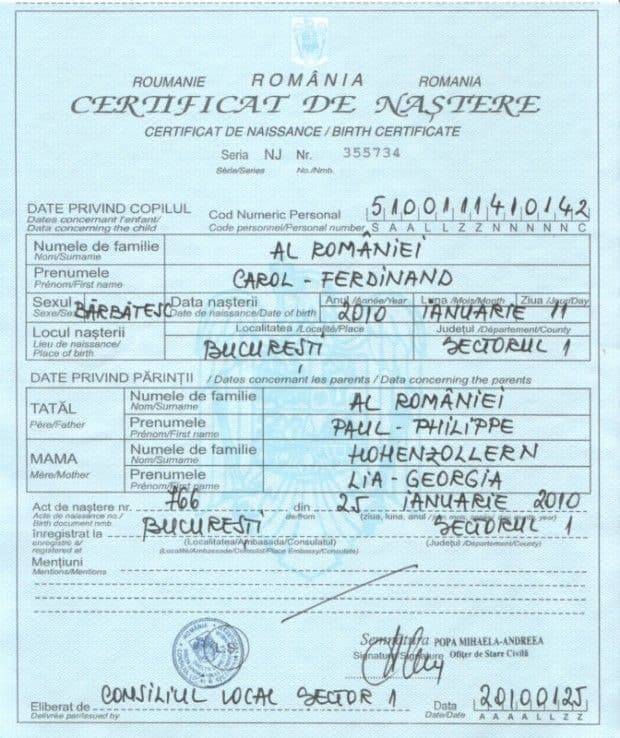 ROUMANIE ROMÂNIA ROMANIA
CERTIFICAT DE NAȘTERE
CERTIFICAT DE NAISSANCE / BIRTH CERTIFICATE
Seria NJ Nr. 355734
Série/Series No./Nmb.
DATE PRIVIND COPILUL
Dates concernant l'enfant/
Data concerning the child
Cod Numeric Personal 5100111410142
Code personnel/Personal number S A A L L Z Z N N N N N C
Numele de familie AL ROMÂNIEI
Nom/Surname
Prenumele CAROL - FERDINAND
Prénom/First name
Sexul BĂRBĂTESC Data nașterii Anul /Année/Year Luna /Mois/Month Ziua /Jour/Day
Sexe/Sex Date de naissance/Date of birth 2010 IANUARIE 11
Locul nașterii Localitatea /Localité/Place Județul /Département/County
Lieu de naissance/
Place of birth BUCUREȘTI SECTORUL 1
DATE PRIVIND PĂRINȚII / Dates concernant les parents / Data concerning the parents
TATĂL Numele de familie AL ROMÂNIEI
Père/Father Nom/Surname
Prenumele PAUL - PHILIPPE
Prénom/First name
MAMA Numele de familie HOHENZOLLERN
Mère/Mother Nom/Surname
Prenumele LIA - GEORGIA
Prénom/First name
Act de naștere nr. 766 din 25 IANUARIE 2010
Acte de naissance no./ de/from (ziua, luna, anul/ year)
Birth document nmb.
Înregistrat la BUCUREȘTI SECTORUL 1
enregistré à/ (Localitatea/Ambasada/Consulatul) (Județul /Département/County)
registered at (Localité/Ambassade/Consulat/Place Embassy/Consulate)
Mențiuni
Mentions/Mentions
ROMÂNIA
L.S.
Semnătura POPA MIHAELA-ANDREEA
Signature/Signature Ofițer de Stare Civilă
Eliberat de CONSILIUL LOCAL SECTOR 1 Data 20100125
Délivrée par/issued by Date/Date A A A A L L Z Z